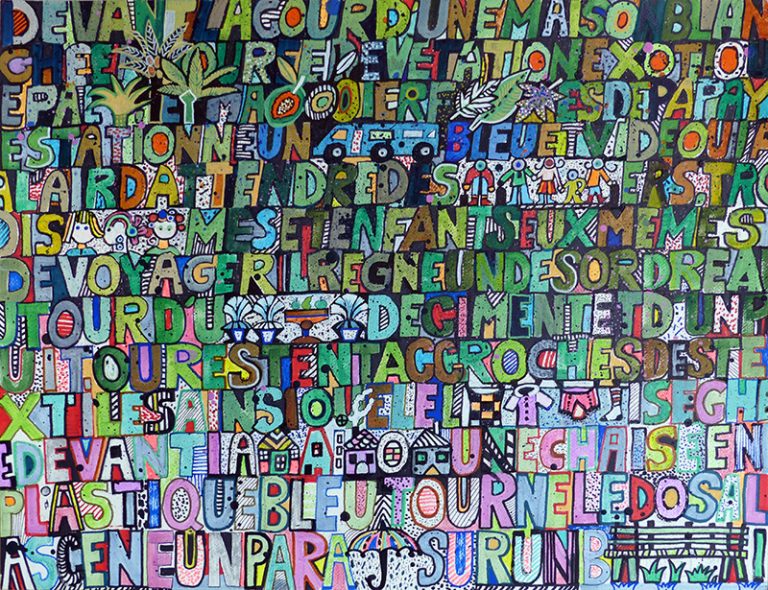 DEVANTLACOURDUNEMAISONBLAN
CHEET OUREE DEVETATIONEXOTIQ
EPAS ESDEPAPAY
ESTATIONNEUN BLEUETVIDEQUIA
ALAIRDATTENDREDES ERSTRO
OIS MESETENFANTSEUXMEMES
DEVOYAGERILREGNEUNDESORDREA
UTOURDU DECIMENTETDUNP
UITOURESTENTACCROCHESDESTE
XTILESAINSIQUELELI UISEGHE
EDEVANTLA A O UNECHAISEEN
PLASTIQUEBLEUTOURNELEDOSAL
ASCENEUNPARA SURUNB